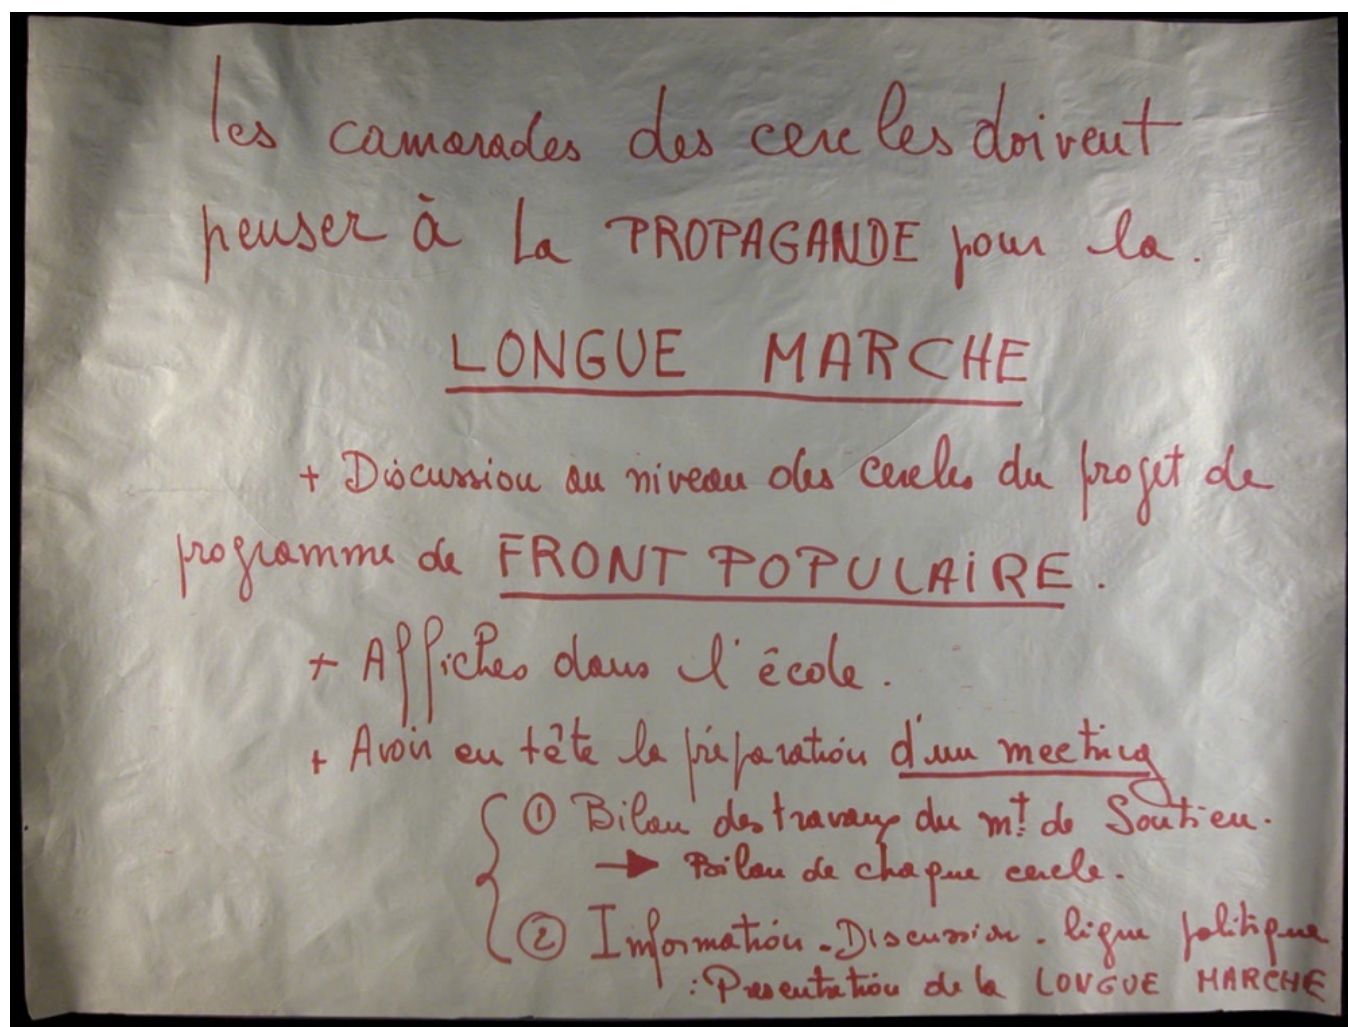 les camarades des cercles doivent
penser à la PROPAGANDE pour la.
LONGUE MARCHE
+ Discussion au niveau des cercles du projet de
programme de FRONT POPULAIRE.
+ Affiches dans l'école.
+ Avoir en tête la préparation d'un meeting
① Bilan des travaux du mt. de Soutien.
→ Bilan de chaque cercle.
② Information - Discussion - ligne politique
: Presentation de la LONGUE MARCHE